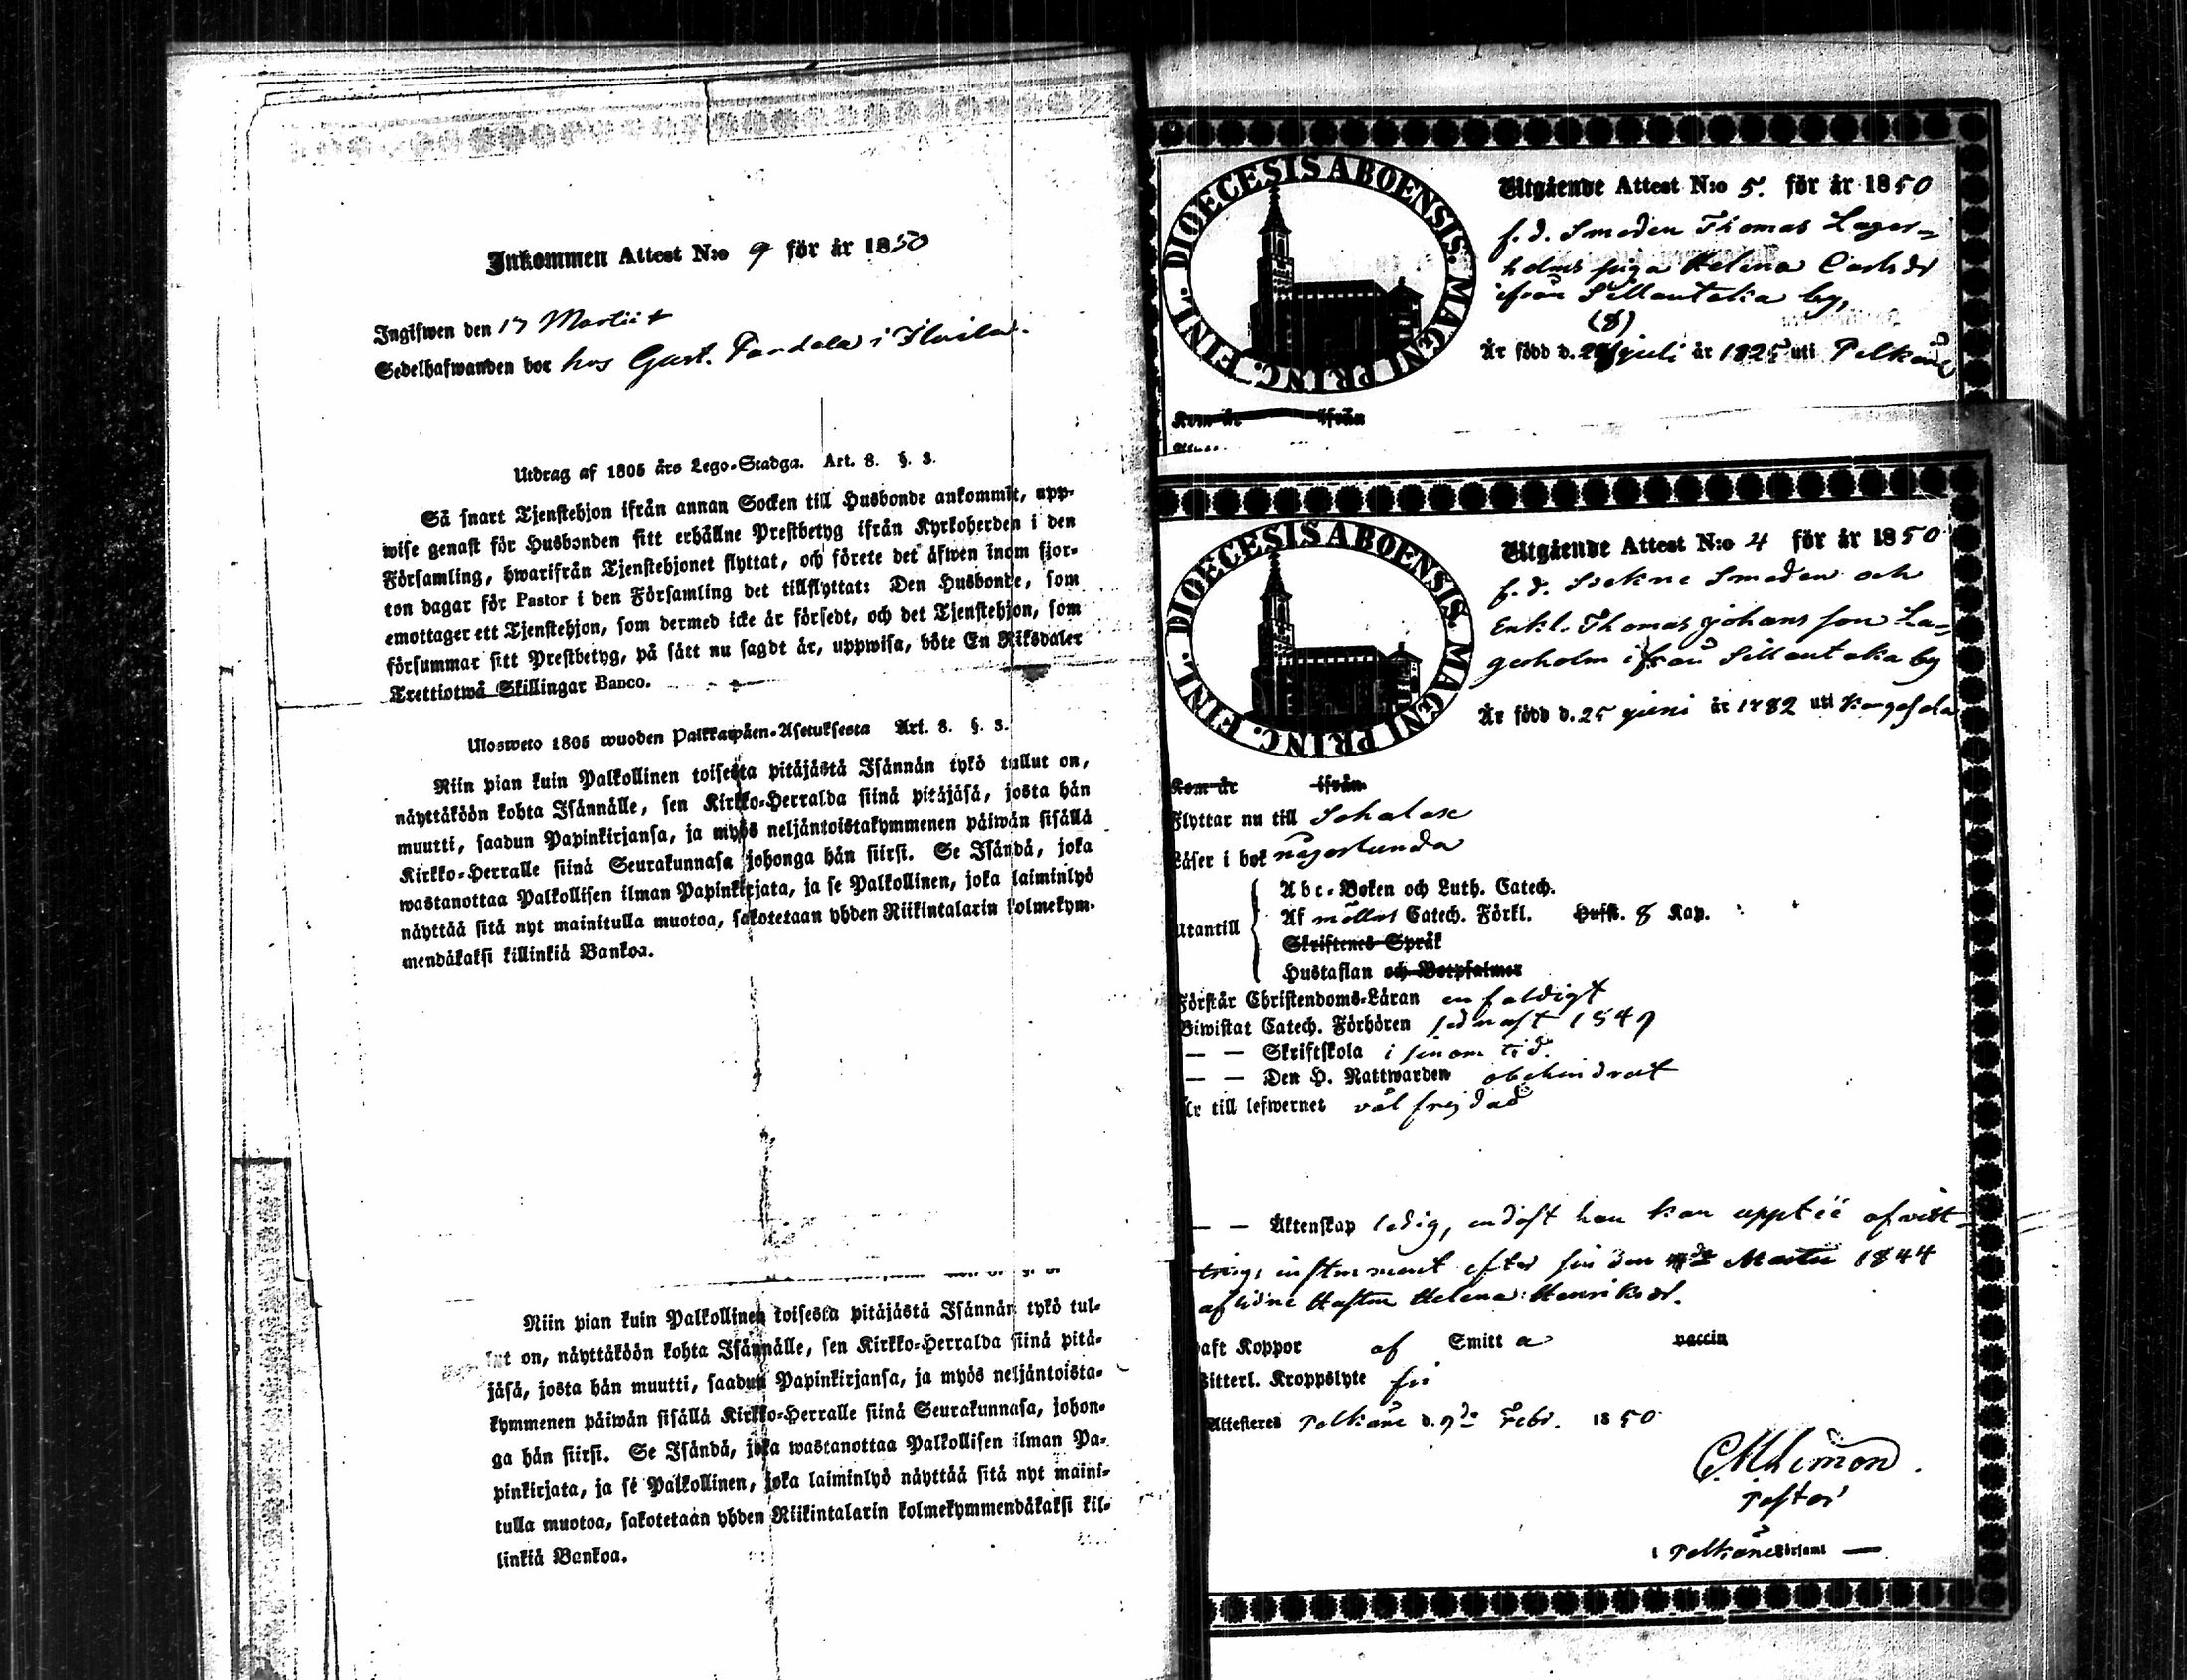 Inkommen Attest N:o 9 för år 1850
Ingifwen den 17 Martii
Sedelhafwanden bor hos Gust. i
Utdrag af 1805 års Lego-Stadga. Art. 8. §. 3.
Så snart Tjenstehjon ifrån annan Socken till Husbonde ankommit, upp-
wise genast för Husbonden sitt erhållne Prestbetyg ifrån Kyrkoherden i den
Församling, hwarifrån Tjenstehjonet flyttat, och förete det äfwen inom fjor-
ton dagar för Pastor i den Församling det tillflyttat: Den Husbonde, som
emottager ett Tjenstehjon, som dermed icke är försedt, och det Tjenstehjon, som
försummar sitt Prestbetyg, på sätt nu sagdt är, uppwisa, böte En Riksdaler
Trettiotwå Skillingar Banco.
Ulosweto 1805 wuoden Palkkawäen-Asetuksesta Art. 8. §. 3.
Niin pian kuin Palkollinen toisesta pitäjästä Isännän tykö tullut on,
näyttäköön kohta Isännälle, sen Kirkko-Herralda siinä pitäjäsä, josta hän
muutti, saadun Papinkirjansa, ja myös neljäntoistakymmenen päiwän sisällä
Kirkko-Herralle siinä Seurakunnasa johonga hän siirsi. Se Isändä, joka
wastanottaa Palkollisen ilman Papinkirjata, ja se Palkollinen, joka laiminlyö
näyttää sitä nyt mainitulla muotoa, sakotetaan yhden Riikintalarin kolmekym-
mendäkaksi killinkiä Bankoa.
Niin pian kuin Palkollinen toisesta pitäjästä Isännän tykö tul-
lut on, näyttäköön kohta Isännälle, sen Kirkko-Herralda siinä pitä-
jäsä, josta hän muutti, saadun Papinkirjansa, ja myös neljäntoista-
kymmenen päiwän sisällä Kirkko-Herralle siinä Seurakunnasa, johon-
ga hän siirsi. Se Isändä, joka wastanottaa Palkollisen ilman Pa-
pinkirjata, ja se Palkollinen, joka laiminlyö näyttää sitä nyt maini-
tulla muotoa, sakotetaan yhden Riikintalarin kolmekymmendäkaksi kil-
linkiä Bankoa.
DIOECESIS ABOENSIS. MAGNI PRINC. FINL.
Utgående Attest N:o 5. för år 1850
f. d. Smeden Thomas Lager-
holms piga Helena Carlsdr
ifrån Sillantaka by,
(8)
Är född d. juli år 1825 uti Pelkäne
Kom år ifrån
DIOECESIS ABOENSIS. MAGNI PRINC. FINL.
Utgående Attest N:o 4 för år 1850
f. d. Sockne Smeden och
Enkl. Thomas Johansson La-
gerholm ifrån Sillantaka by
Är född d. 25 juni år 1782 uti Kangasala
Kom år ifrån
Flyttar nu till
Läser i bok någorlunda
Utantill
Abc-Boken och Luth. Catech.
Af Catech. Förkl. Husft. 8 Kap.
Skriftenes Språk
Hustaflan och Botpsalmer
Förstår Christendoms-Läran enfaldigt
Biwistat Catech. Förhören sednast 1849
— — Skriftskola i sinom tid.
— — Den H. Nattwarden obehindrat
Är till lefwernet väl frejdad
— — Äktenskap ledig, endast han kan uppte afvitt-
rings instrument efter sin den Martii 1844
aflidne Hustru Helena Henriksdr.
Haft Koppor af Smitta vaccin
Witterl. Kroppslyte fri
Attesteres Pelkäne d. 9de Febr. 1850
Pastor
i Pelkäne Församl